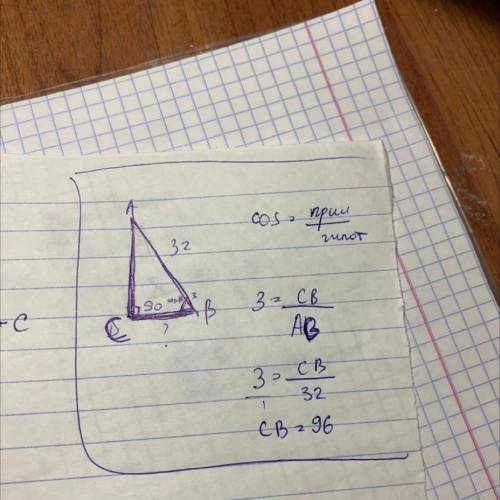 A
32
90 cos B 3
C B
?
- C
cos = прил / гипот
3 = CB / AB
3 = CB / 32
1
CB = 96